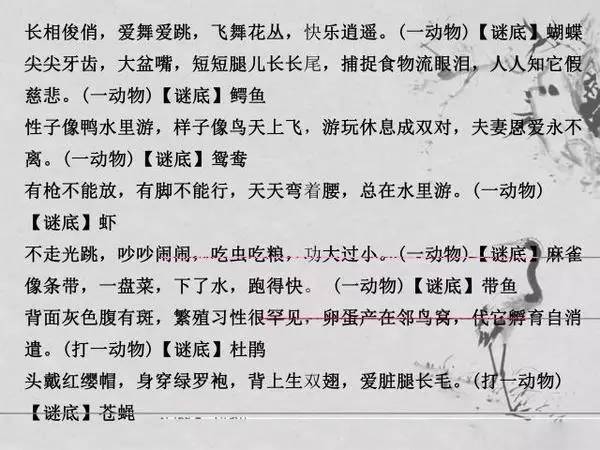 长相俊俏，爱舞爱跳，飞舞花丛，快乐逍遥。(一动物)【谜底】蝴蝶
尖尖牙齿，大盆嘴，短短腿儿长长尾，捕捉食物流眼泪，人人知它假
慈悲。(一动物)【谜底】鳄鱼
性子像鸭水里游，样子像鸟天上飞，游玩休息成双对，夫妻恩爱永不
离。(一动物)【谜底】鸳鸯
有枪不能放，有脚不能行，天天弯着腰，总在水里游。(一动物)
【谜底】虾
不走光跳，吵吵闹闹，吃虫吃粮，功大过小。(一动物)【谜底】麻雀
像条带，一盘菜，下了水，跑得快。 (一动物)【谜底】带鱼
背面灰色腹有斑，繁殖习性很罕见，卵蛋产在邻鸟窝，代它孵育自消
遣。(打一动物)【谜底】杜鹃
头戴红缨帽，身穿绿罗袍，背上生双翅，爱脏腿长毛。(打一动物)
【谜底】苍蝇